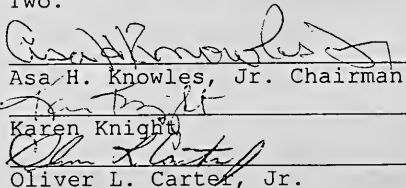 Two.
Asa H Knowles Jr
Asa H. Knowles, Jr. Chairman
Karen Knight
Karen Knight
Oliver L. Carter, Jr.